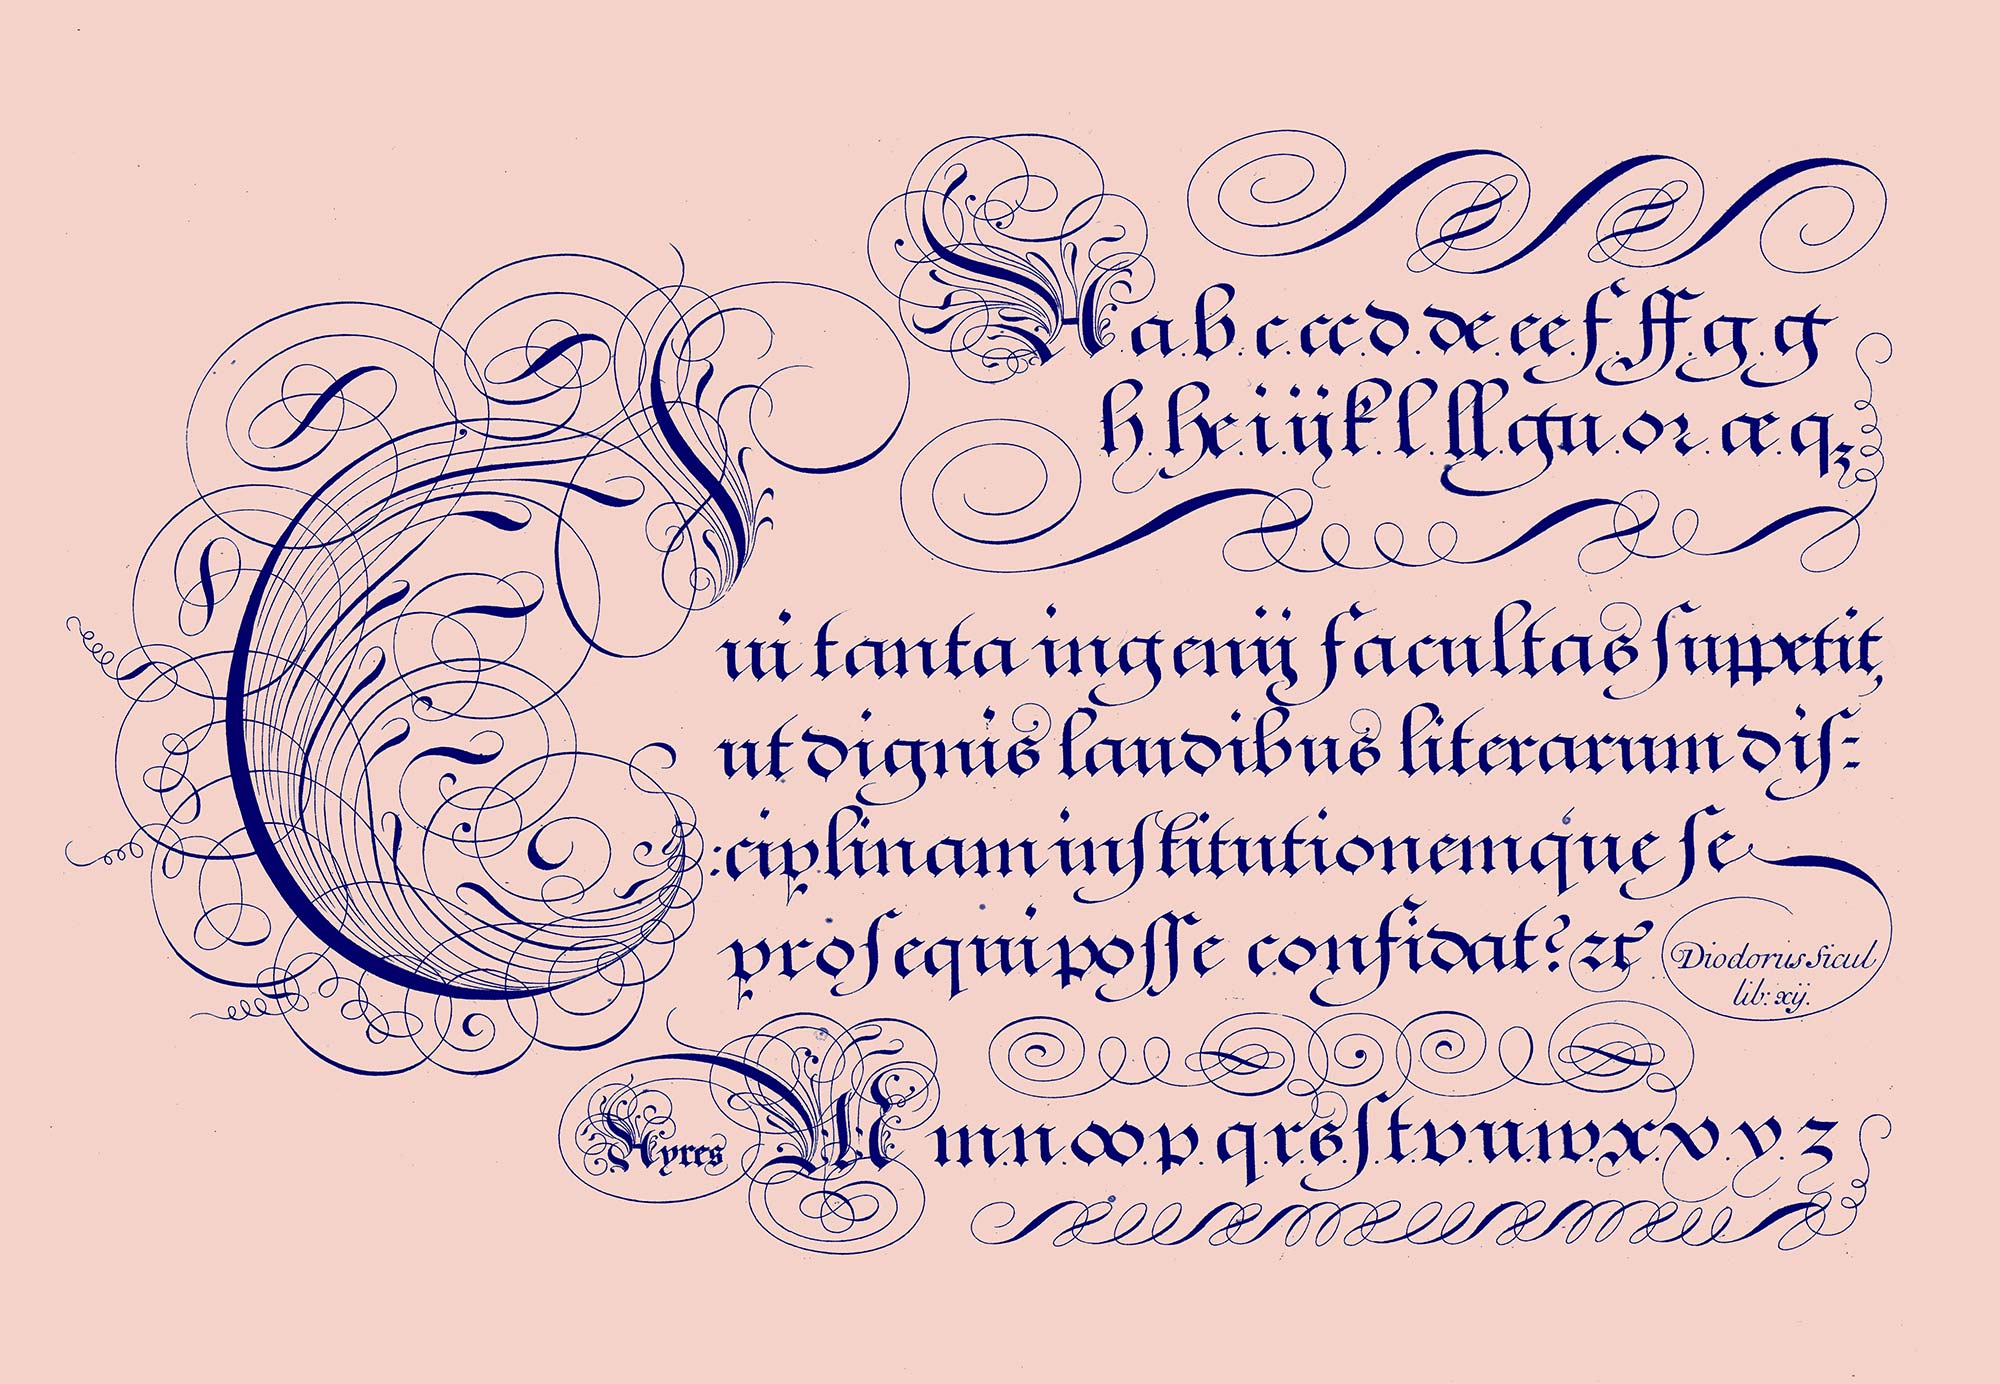 A a.b.c.ccd.de.eef.ff.g.g
h.he.i.ij.k.l.ll.gn.or.œ.qz
Cui tanta ingenij facultas ſuppetit,
ut dignis laudibus literarum diſ-
:ciplinam inſtitutionemque ſe
proſequi poſſe confidat? &c
Diodorus Sicul
lib: xij.
Ayres
M m.n.oo.p.q.r.s.ſ.t.v.u.w.x.v.y.z